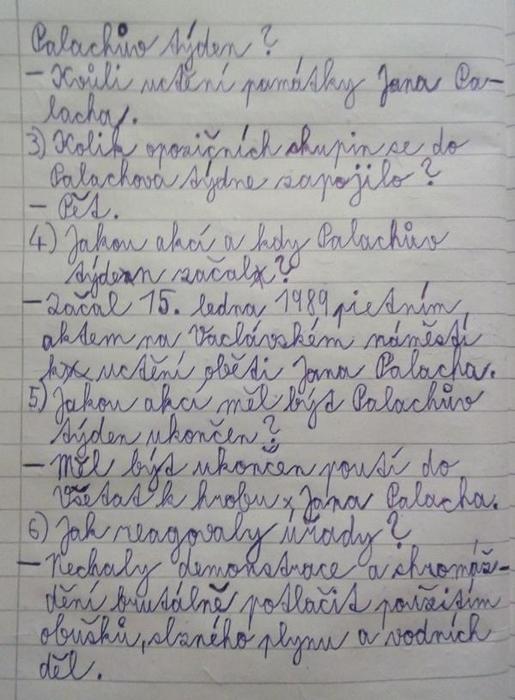 Palachův týden?
- Kvůli uctění památky Jana Pa-
lacha.
3) Kolik opozičních skupin se do
Palachova týdne zapojilo?
- Pět.
4) Jakou akcí a kdy Palachův
týden začal?
- Začal 15. ledna 1989 pietním
aktem na Václavském náměstí
k uctění oběti Jana Palacha.
5) Jakou akcí měl být Palachův
týden ukončen?
- Měl být ukončen poutí do
Všetat k hrobu Jana Palacha.
6) Jak reagovaly úřady?
- Nechaly demonstrace a shromáž-
dění brutálně potlačit použitím
obušků, slzného plynu a vodních
děl.